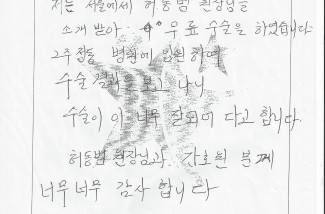 저는 서울에서 허동범 원장님을
소개 받아 무료 수술을 하였습니다
2주 정동 병원에 입원하여
수술 결과를 보고 나니
수술이 이 너무 잘되어 다고 합니다.
허동범 원장님과 간호원 분께
너무너무 감사 합니다